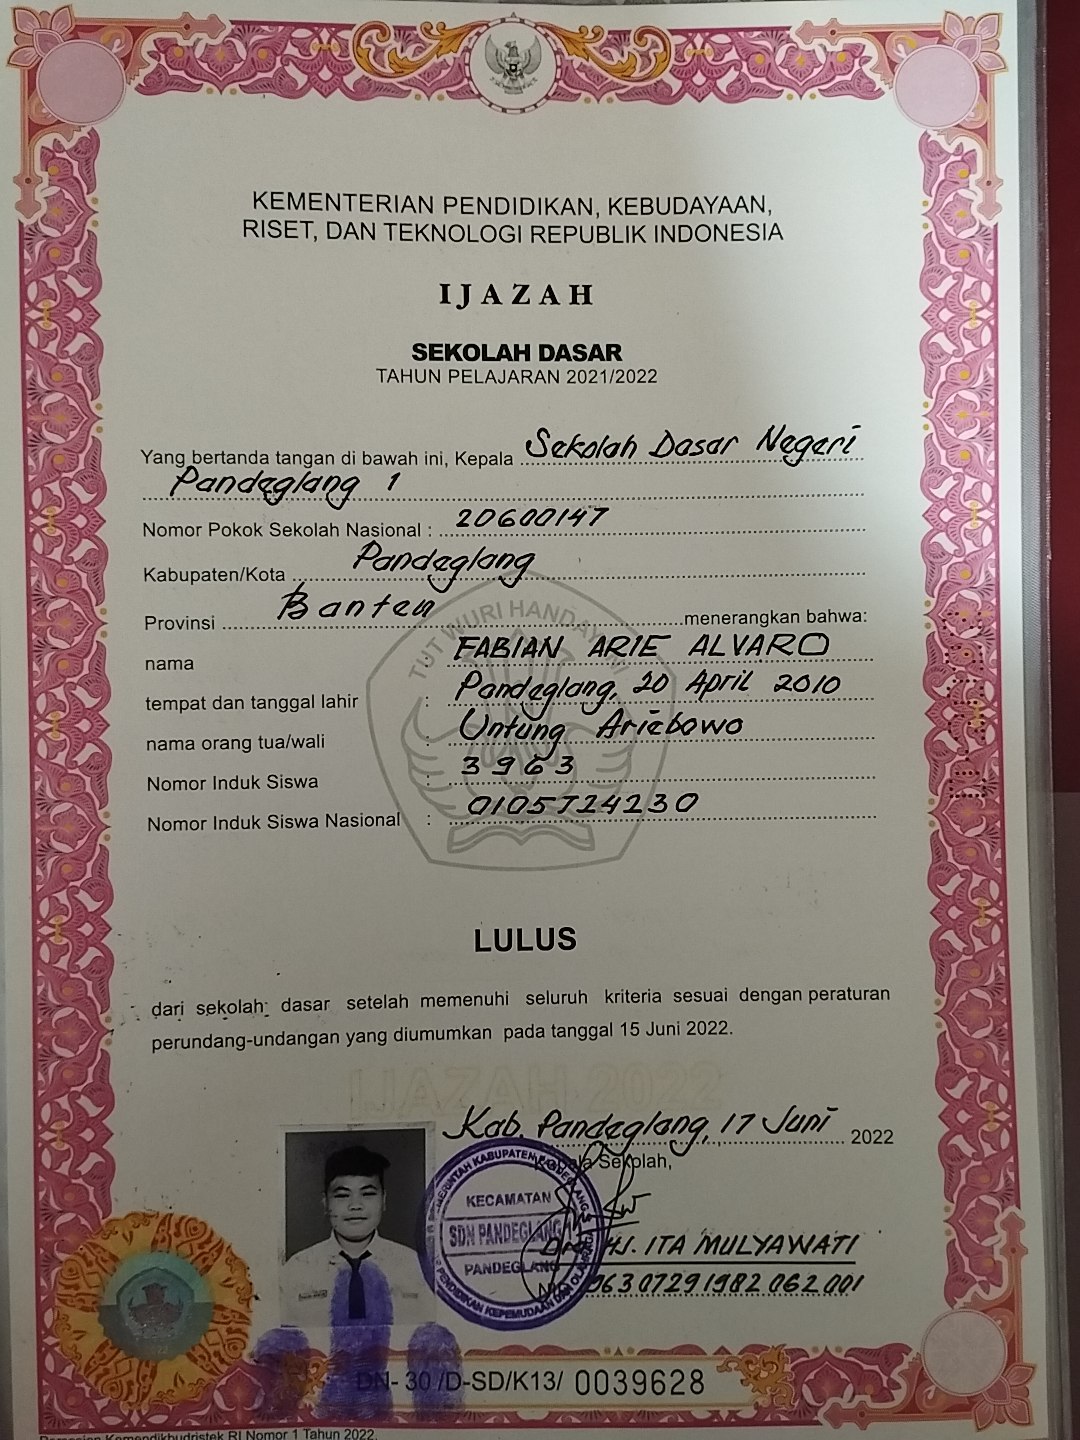 KEMENTERIAN PENDIDIKAN, KEBUDAYAAN,
RISET, DAN TEKNOLOGI REPUBLIK INDONESIA
IJAZAH
SEKOLAH DASAR
TAHUN PELAJARAN 2021/2022
Yang bertanda tangan di bawah ini, Kepala Sekolah Dasar Negeri
Pandeglang 1
Nomor Pokok Sekolah Nasional : 20600147
Kabupaten/Kota Pandeglang
Provinsi Banten menerangkan bahwa:
TUT WURI HANDAYANI
nama FABIAN ARIE ALVARO
tempat dan tanggal lahir : Pandeglang, 20 April 2010
nama orang tua/wali : Untung Ariebowo
Nomor Induk Siswa : 3963
Nomor Induk Siswa Nasional : 0105724230
LULUS
dari sekolah dasar setelah memenuhi seluruh kriteria sesuai dengan peraturan
perundang-undangan yang diumumkan pada tanggal 15 Juni 2022.
IJAZAH 2022
Kab. Pandeglang, 17 Juni 2022
Kepala Sekolah,
PEMERINTAH KABUPATEN PANDEGLANG
KECAMATAN
SDN PANDEGLANG
PANDEGLANG
PENDIDIKAN KEPEMUDAAN DAN OLAHRAGA
HJ. ITA MULYAWATI
196307291982062001
DN- 30 /D-SD/K13/ 0039628
Kemendikbudristek RI Nomor 1 Tahun 2022.